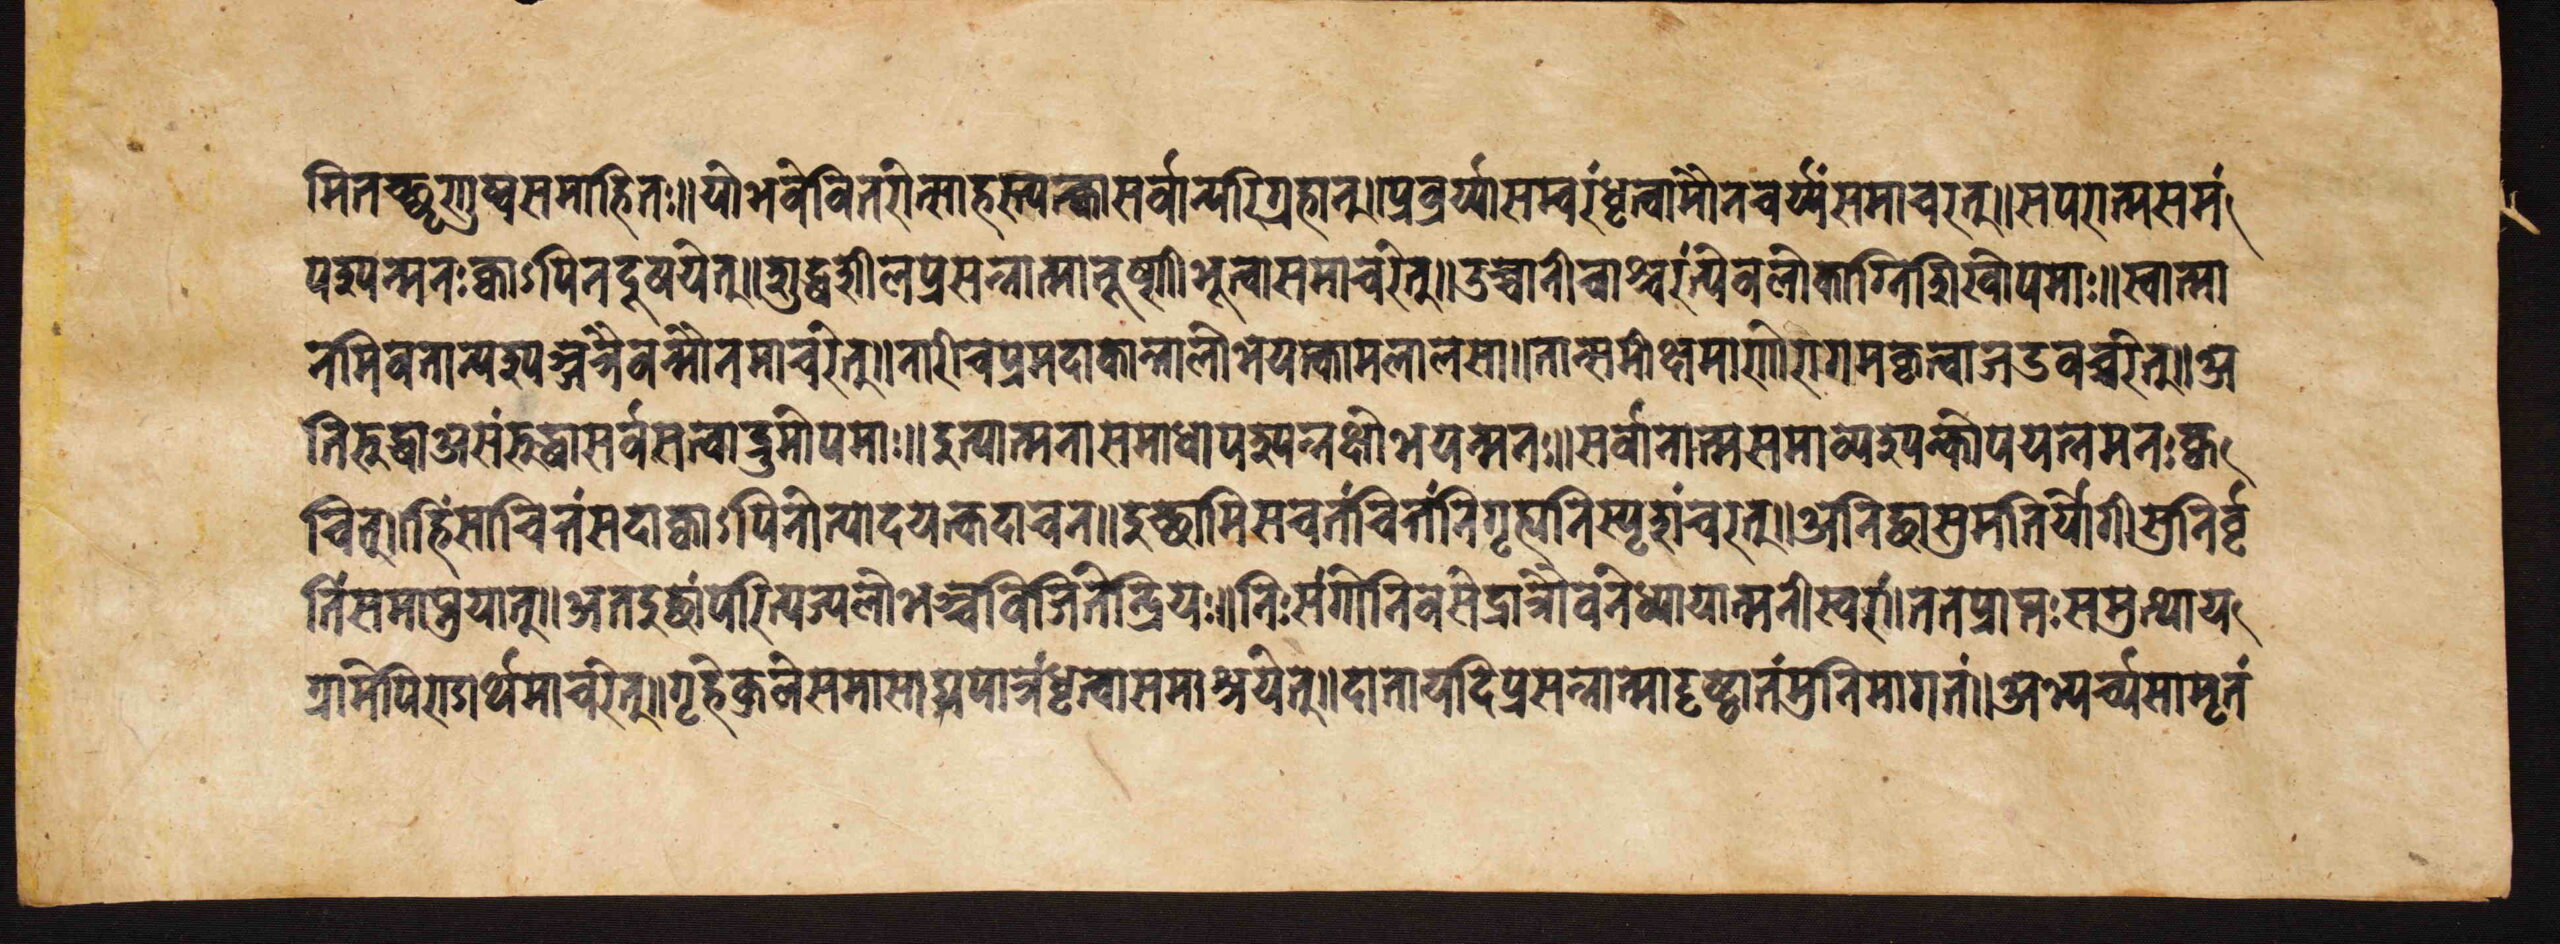 मि तच्छृणुष्व समाहितः॥ यो भवे विनरोत्साह स्त्यक्त्वा सर्वान्परिग्रहान्॥ प्रव्रर्य्या सम्वरं धृत्वा मौनचर्य्यं समाचरत्॥ स परात्म समं
पश्यन्मनः क्वाऽपि न दूषयेत्॥ शुद्धशील प्रसन्नात्मा तूष्णी भूत्वा समाचरेत्॥ उच्चा नीचाश्चरंत्येव लोकाग्नि शिखोपमाः॥ स्वात्मा
नमिव तान्पश्यञ्चत्रैव न्मौनमाचरेत्॥ नारी च प्रमदाकान्ता लोभयत्कामलालसा॥ तान्समीक्षमाणो रागमकृत्वा जडवच्चरेत्॥ अ
तिरुद्धा असंरुद्धा सर्वसत्वा द्रुमोपमाः॥ इत्यात्मना समाधाय पश्यन्न क्षोभयन्मनः॥ सर्वानात्म समाव्यश्यन्कोपयन्त मनः क्व
चित्॥ हिंसाचित्तं सदा क्वाऽपि नोत्पादयत्कदाचन॥ इच्छामि सचतं चित्तं निगृह्य निस्पृशं चरत्॥ अनिद्धा सुमतिर्योगी सुनिर्वृ
तिं समाप्नुयात्॥ अत इच्छां परित्यज्य लोभञ्च विजितेन्द्रियः॥ निःसंगो निवसेद्रात्रौ वने ध्यायात्मनीस्वरं॥ तत प्रातः समुत्थाय
ग्रामे पिण्डार्थमाचरेत्॥ गृहे कुले समासाद्य पात्रं धृत्वा समाश्रयेत्॥ दाता यदि प्रसन्नात्मा दृष्ट्वा तं मुनिमागतं॥ अभ्यर्च्य सामृतं